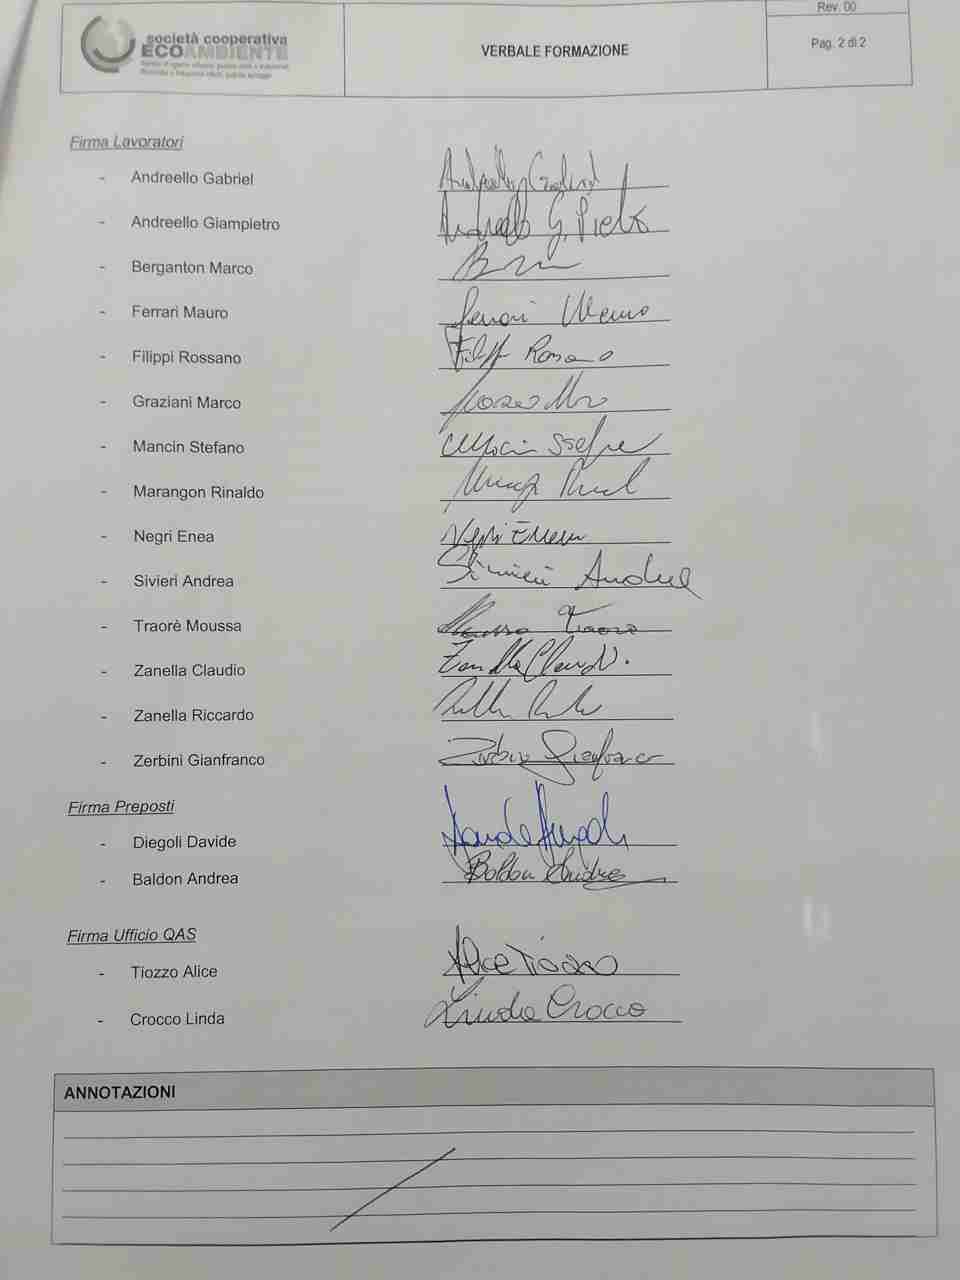 Rev. 00
società cooperativa
ECOAMBIENTE
VERBALE FORMAZIONE
Pag. 2 di 2
Firma Lavoratori
- Andreello Gabriel
- Andreello Giampietro Andreello G. Pietro
- Berganton Marco
- Ferrari Mauro Ferrari Mauro
- Filippi Rossano Filippi Rossano
- Graziani Marco
- Mancin Stefano
- Marangon Rinaldo
- Negri Enea Negri Enea
- Sivieri Andrea Sivieri Andrea
- Traorè Moussa Moussa Traore
- Zanella Claudio Zanella Claudio
- Zanella Riccardo
- Zerbini Gianfranco Zerbini Gianfranco
Firma Preposti
- Diegoli Davide Davide Diegoli
- Baldon Andrea Baldon Andrea
Firma Ufficio QAS
- Tiozzo Alice Alice Tiozzo
- Crocco Linda Linda Crocco
ANNOTAZIONI